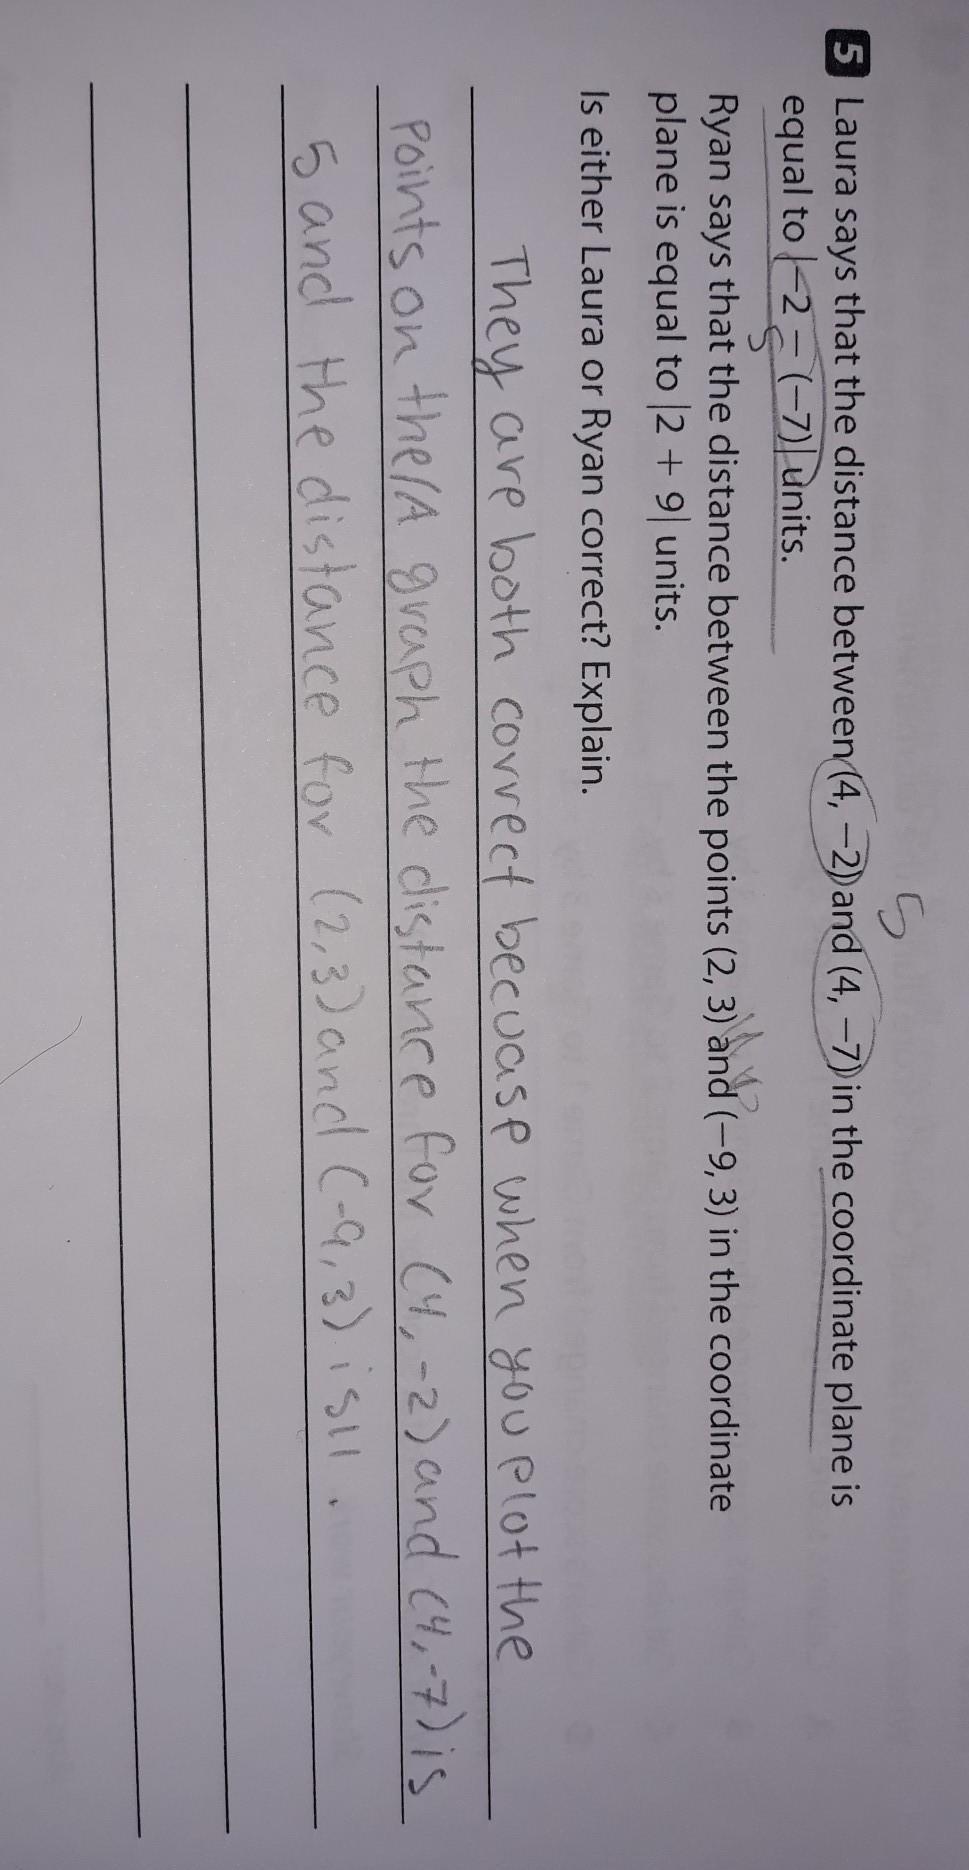 5 Laura says that the distance between (4, −2) and (4, −7) in the coordinate plane is
equal to |−2 − (−7)| units.
5
5
Ryan says that the distance between the points (2, 3) and (−9, 3) in the coordinate
plane is equal to |2 + 9| units.
Is either Laura or Ryan correct? Explain.
They are both correct becuase when you plot the
points on the graph the distance for (4,-2) and (4,-7) is
5 and the distance for (2,3) and (-9,3) is 11.